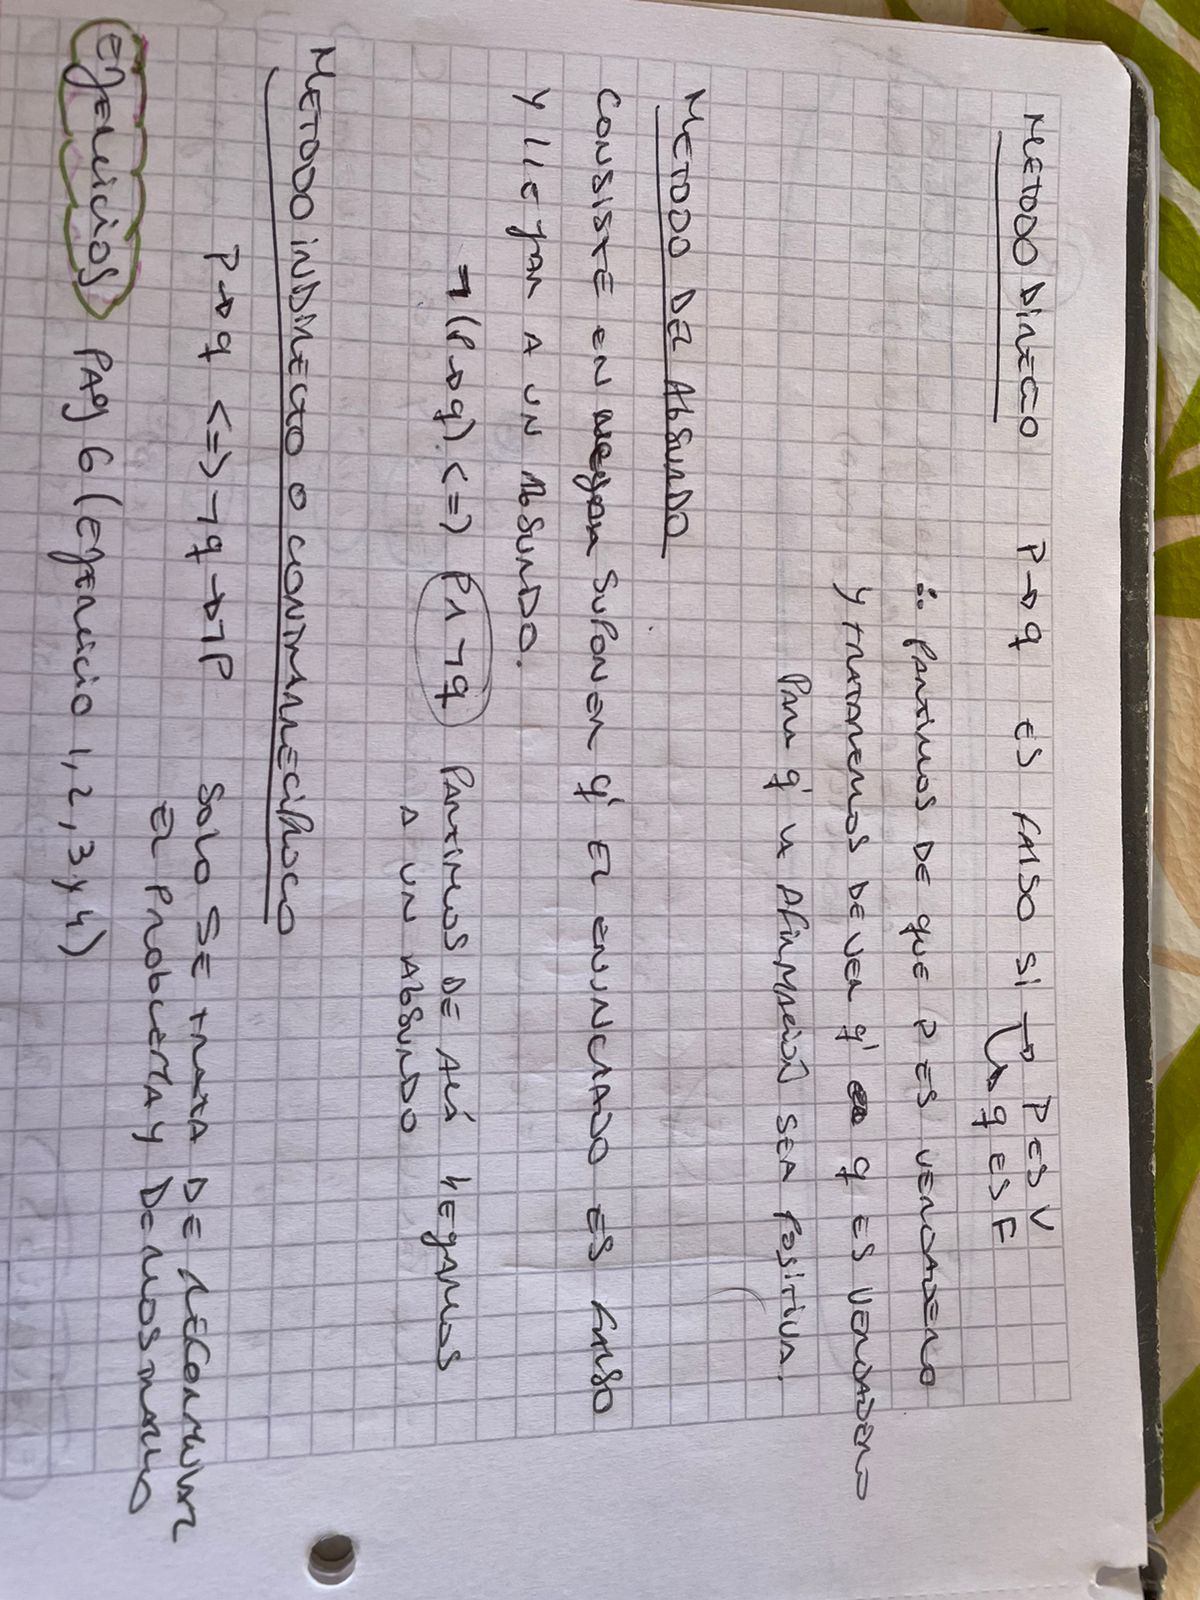 METODO DIRECTO P→q ES FALSO SI → P ES V
↳ q ES F
∴ PARTIMOS DE QUE P ES VERDADERO
Y TRATAREMOS DE VER q' q ES VERDADERO
PARA q' LA AFIRMACIÓN SEA POSITIVA.
METODO DEL ABSURDO
CONSISTE EN NEGAR SUPONER q' EL ENUNCIADO ES FALSO
Y LLEGAR A UN ABSURDO.
¬(P→q) <=> P∧¬q PARTIMOS DE ALLÁ LLEGAMOS
A UN ABSURDO
METODO INDIRECTO O CONTRARRECIPROCO
P→q <=> ¬q→¬P SOLO SE TRATA DE REFORMULAR
EL PROBLEMA Y DEMOSTRARLO
EJERCICIOS PAG 6 (EJERCICIO 1, 2, 3 y 4)